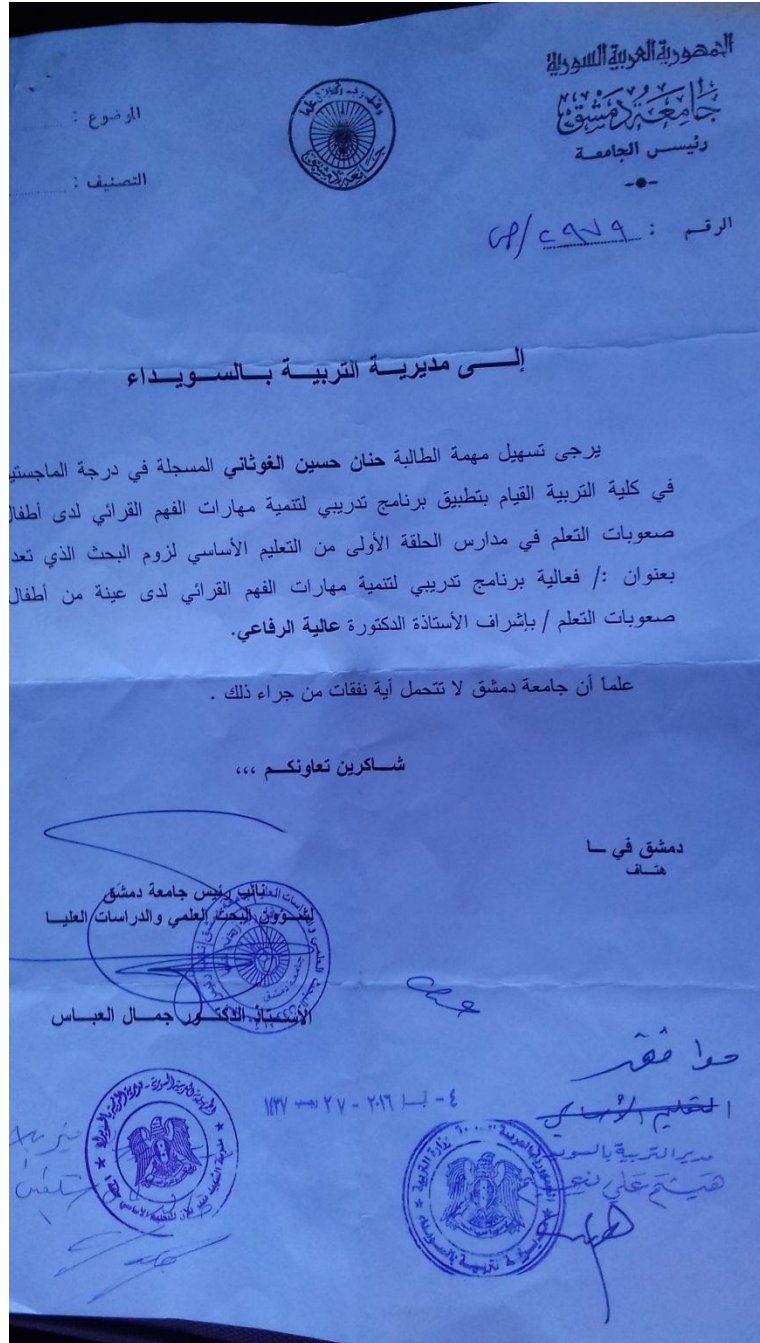 الجمهورية العربية السورية
جامعة دمشق
رئيس الجامعة
الرقم : ٢٩٧٩/ص
الموضوع :
التصنيف :
وقل رب زدني علما
جامعة دمشق
إلى مديرية التربية بالسويداء
يرجى تسهيل مهمة الطالبة حنان حسين الغوثاني المسجلة في درجة الماجستير
في كلية التربية القيام بتطبيق برنامج تدريبي لتنمية مهارات الفهم القرائي لدى أطفال
صعوبات التعلم في مدارس الحلقة الأولى من التعليم الأساسي لزوم البحث الذي تعد
بعنوان :/ فعالية برنامج تدريبي لتنمية مهارات الفهم القرائي لدى عينة من أطفال
صعوبات التعلم / بإشراف الأستاذة الدكتورة عالية الرفاعي.
علماً أن جامعة دمشق لا تتحمل أية نفقات من جراء ذلك .
شاكرين تعاونكم ،،،
دمشق في
هتاف
نائب رئيس جامعة دمشق
لشؤون البحث العلمي والدراسات العليا
الأستاذ الدكتور جمال العباس
موافق
التعليم الأساسي
مدير التربية بالسويداء
هيثم علي
٤ - ٢٠١٦ - ٢٧ رجب ١٤٣٧
الجمهورية العربية السورية وزارة التربية
مديرية التربية بالسويداء